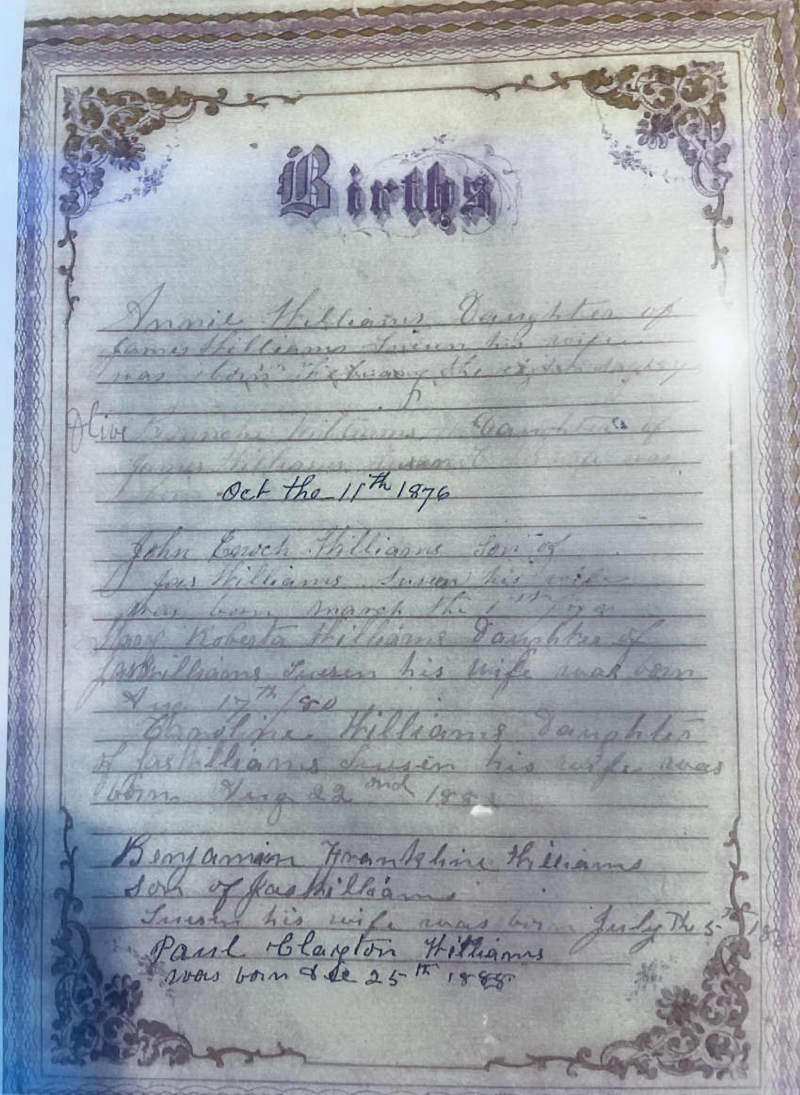 Births
Annie Williams Daughter of
James Williams Susen his wife
was born the
Olive Williams Daughter of
James Williams
Oct the 11th 1876
John Enoch Williams Son of
Jas Williams Susen his wife
was born march the
Mary Roberta Williams Daughter of
Jas Williams Susen his wife was born
Aug 17th /80
Caroline Williams Daughter
of Jas Williams Susen his wife was
born Aug 22nd
Benjamin Frankline Williams
son of Jas Williams
Susen his wife was born July th 5th
Paul Clayton Williams
was born Dec 25th 1888